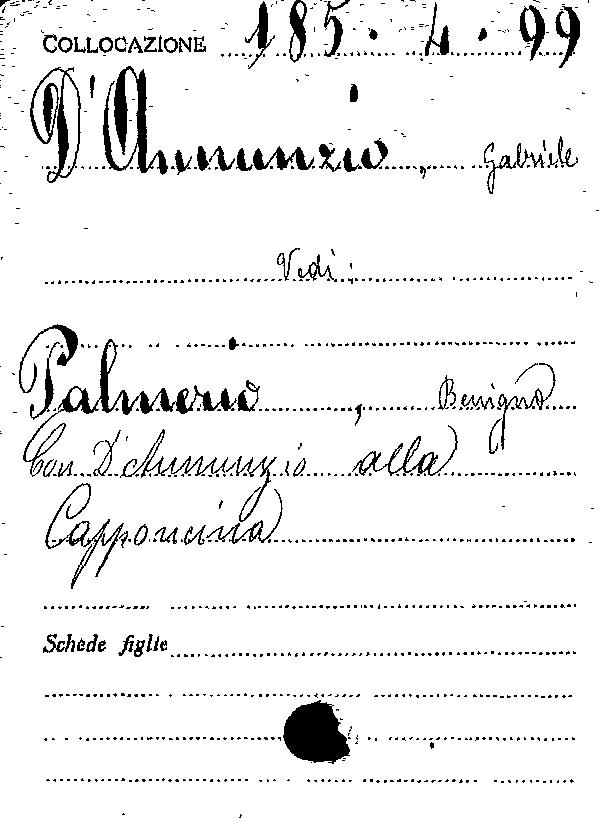 COLLOCAZIONE 185. 4. 99
D'Annunzio, Gabriele
Vedi:
Palmerio, Benigno
Con D'Annunzio alla
Capponcina
Schede figlie